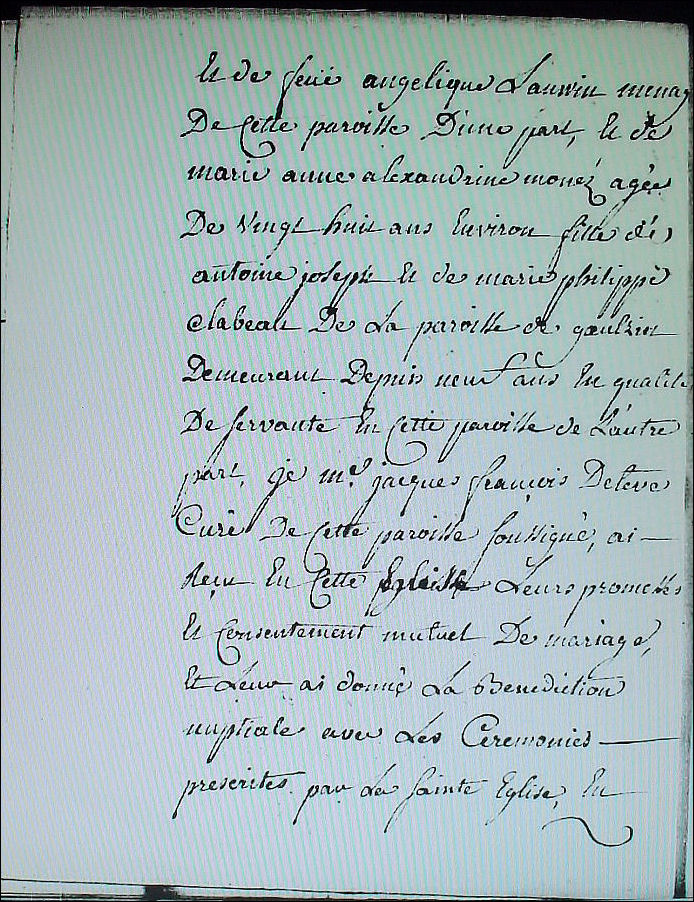 Et de feüe angelique Lauwin menag
De Cette paroisse D'une part, Et de
marie anne alexandrine monéz agée
De Vingt huit ans Environ fille de
antoine joseph Et de marie philippe
Clabeau De La paroisse de gœulzin
Demeurant Depuis neuf ans En qualité
De servante En Cette paroisse de L'autre
part, je me jacques françois Deleve
Curé De Cette paroisse soussigné, ai
Reçu En Cette Eglise Leurs promesses
Et Consentement mutuel De mariage,
Et Leur ai donné La Benediction
nuptiale avec Les Ceremonies
prescrites par La Sainte Eglise, En